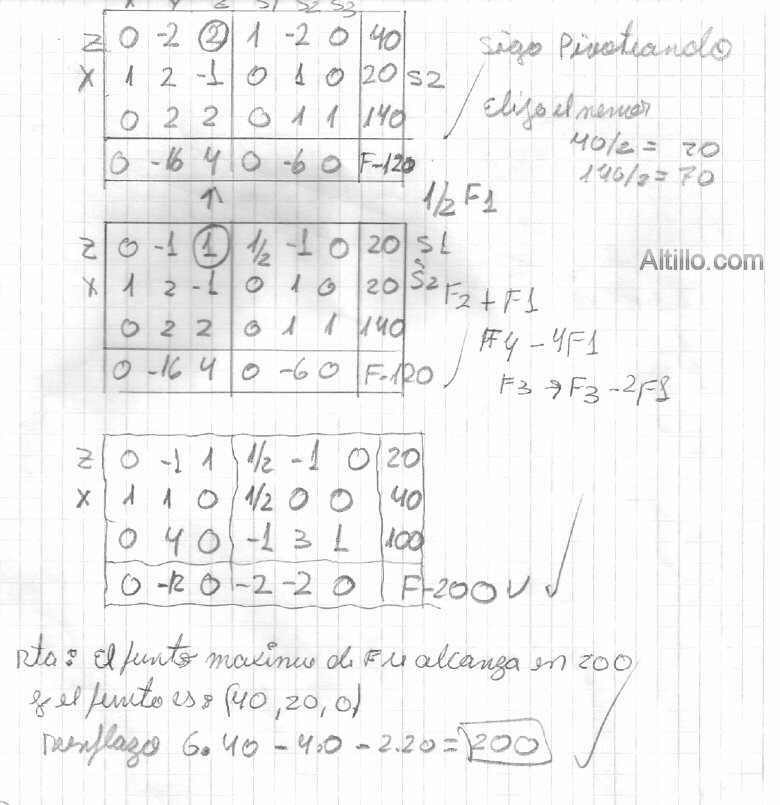 X Y Z S1 S2 S3
Z 0 -2 2 1 -2 0 40
X 1 2 -1 0 1 0 20 S2
0 2 2 0 1 1 140
0 -16 4 0 -6 0 F-120
Sigo Pivoteando
Elijo el menor
40/2 = 20
140/2 = 70
1/2 F1
Z 0 -1 1 1/2 -1 0 20 S1
X 1 2 -1 0 1 0 20 S2
0 2 2 0 1 1 140
0 -16 4 0 -6 0 F-120
Altillo.com
F2 + F1
F4 - 4F1
F3 → F3 - 2F1
Z 0 -1 1 1/2 -1 0 20
X 1 1 0 1/2 0 0 40
0 4 0 -1 3 1 100
0 -12 0 -2 -2 0 F-200
Rta: El punto maximo de F se alcanza en 200
y el punto es: (40, 20, 0)
Reemplazo 6.40 - 4.0 - 2.20 = 200